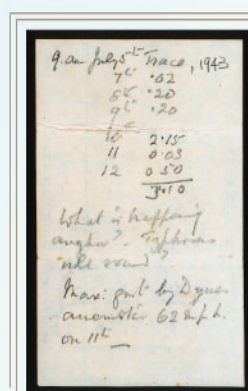 9. am July 5th Trace, 1943
7th .02
8th .20
9th .20
10 2.15
11 0.03
12 0.50
3.10
What is happening
anyhow? Typhoons
all round?
Max: gust by Dynes
anemometer 62 m.p.h.
on 11th